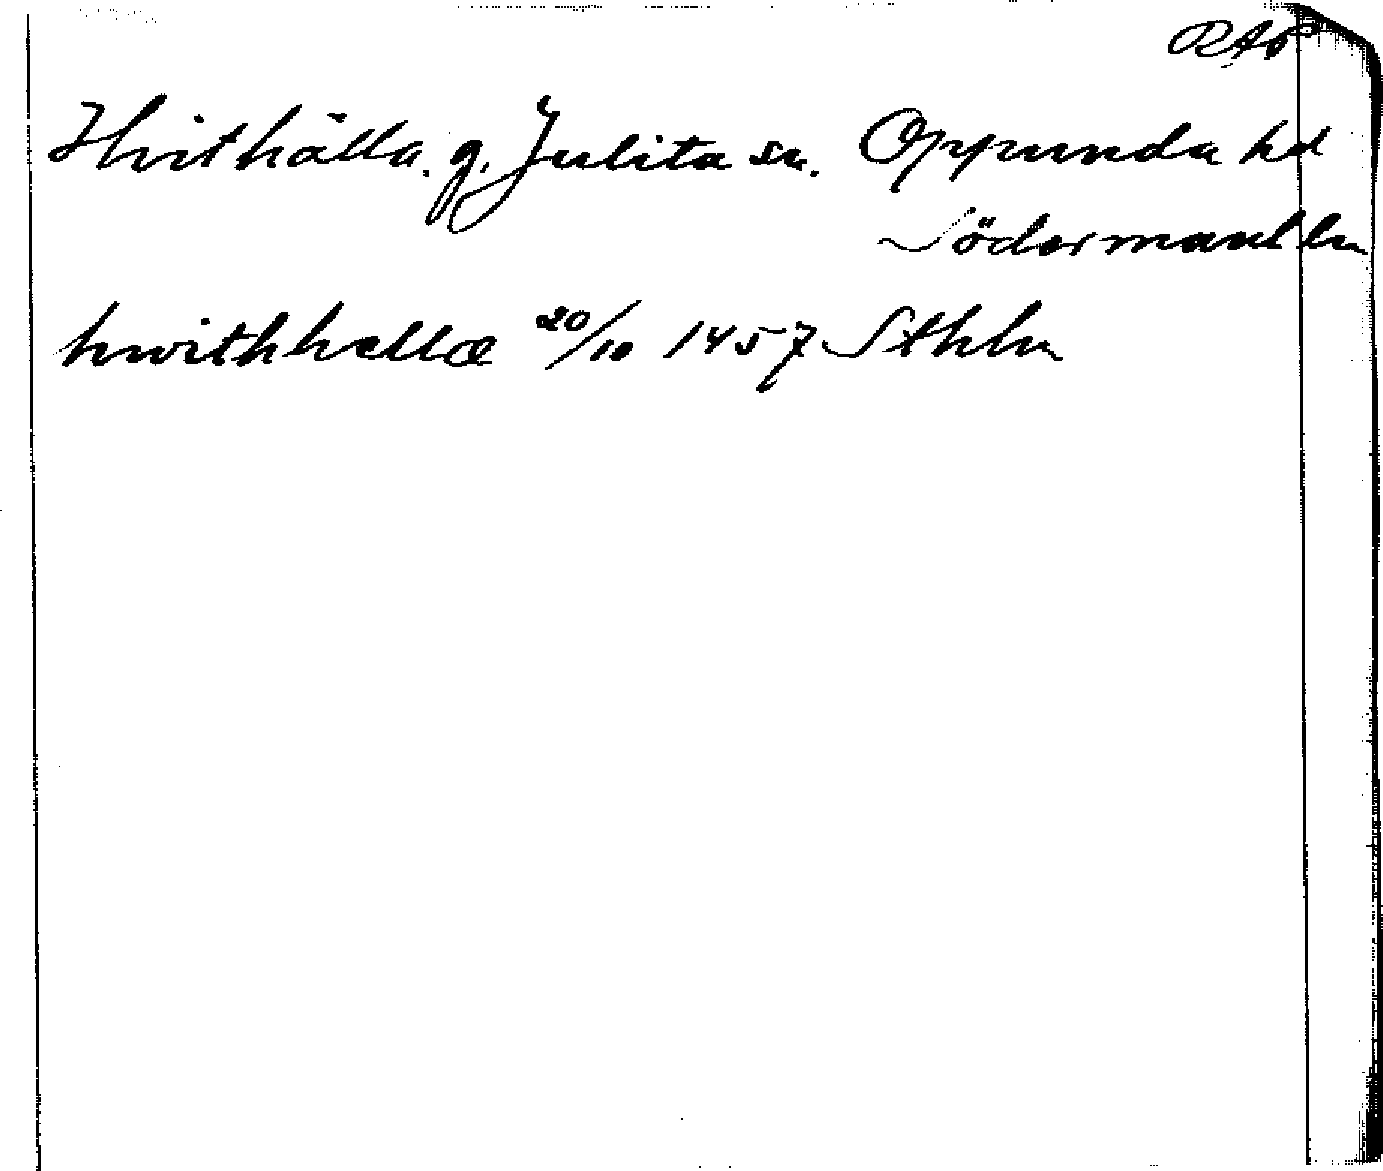 RAp
Hvithälla. g. Julita sn. Oppunda hd
Södermanl ln
hwithhellæ 20/10 1457 Sthlm